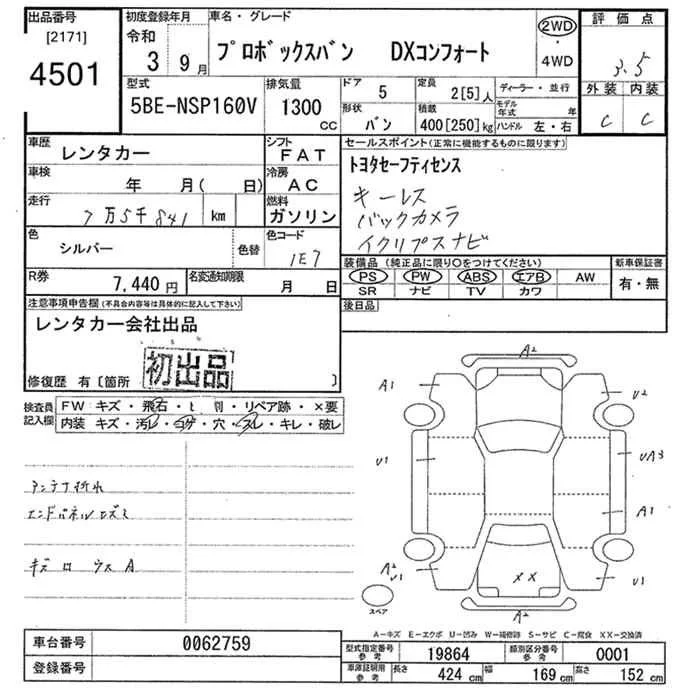 出品番号 初度登録年月 車名・グレード 評価点
[2171] 令和 2WD ・ 4WD
4501 3 9月 プロボックスバン DXコンフォート 3.5
型式 排気量 ドア 5 定員 2[5]人 ディーラー・並行 外装 内装
5BE-NSP160V 1300 CC 形状 バン 積載 400[250]kg モデル年式 年 ハンドル 左・右 C C
車歴 レンタカー シフト FAT セールスポイント(正常に機能するものに限ります)
車検 年 月( 日) 冷房 AC トヨタセーフティセンス
走行 7万5千841 km 燃料 ガソリン キーレス
バックカメラ
色 シルバー 色替 色コード 1E7 イクリプスナビ
R券 7,440円 名変通知期限 月 日 装備品(純正品に限り○をつけてください) 新車保証書
PS PW ABS エアB AW 有・無
SR ナビ TV カワ
注意事項申告欄(不具合内容等は具体的に記入して下さい) 後日品
レンタカー会社出品
初出品
修復歴 有〔箇所 〕
検査員記入欄 FW キズ・飛石・ヒ 割・リペア跡・×要
内装 キズ・汚レ・コゲ・穴・スレ・キレ・破レ
A2
A1 U2
U1 UA3
A1
アンテナ折れ
エンドパネルロズミ
A2 U1 U1
××
スペア A2
A-キズ E-エクボ U-凹み W-補修跡 S-サビ C-腐食 XX-交換済
車台番号 0062759 型式指定番号 参考 19864 類別区分番号 参考 0001
登録番号 車庫証明用 参考 長さ 424 cm 幅 169 cm 高さ 152 cm